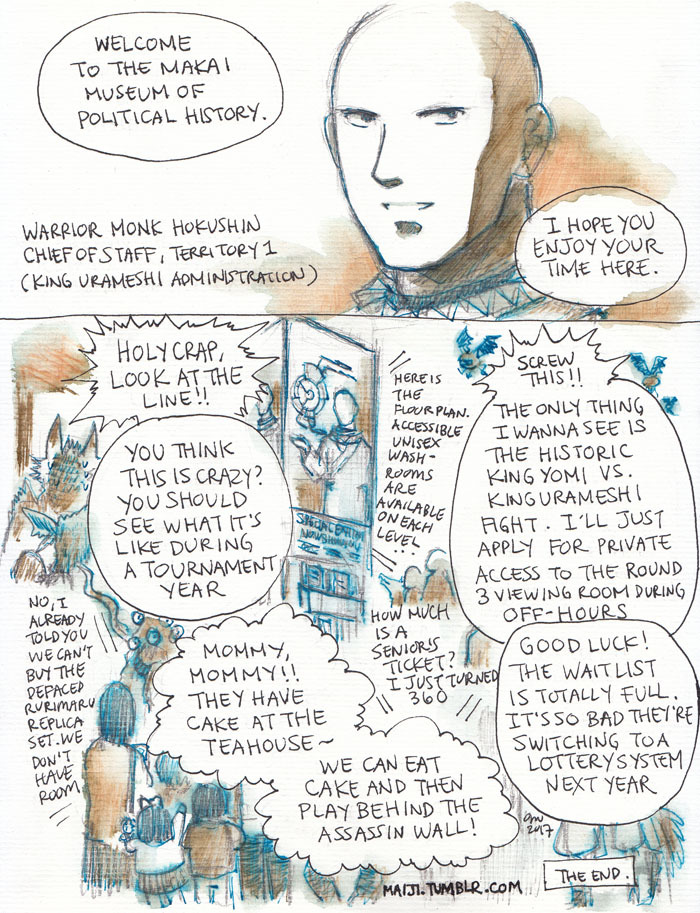 WELCOME
TO THE MAKAI
MUSEUM OF
POLITICAL HISTORY.
WARRIOR MONK HOKUSHIN
CHIEF OF STAFF, TERRITORY 1
(KING URAMESHI ADMINISTRATION)
I HOPE YOU
ENJOY YOUR
TIME HERE.
HOLY CRAP,
LOOK AT THE
LINE!!
YOU THINK
THIS IS CRAZY?
YOU SHOULD
SEE WHAT IT'S
LIKE DURING
A TOURNAMENT
YEAR
SPECIAL EXHIBITION
NOW SHOWING
HERE IS
THE
FLOUR PLAN.
ACCESSIBLE
UNISEX
WASH-
ROOMS
ARE
AVAILABLE
ON EACH
LEVEL...
SCREW
THIS!!
THE ONLY THING
I WANNA SEE IS
THE HISTORIC
KING YOMI VS.
KING URAMESHI
FIGHT. I'LL JUST
APPLY FOR PRIVATE
ACCESS TO THE ROUND
3 VIEWING ROOM DURING
OFF-HOURS
GOOD LUCK!
THE WAITLIST
IS TOTALLY FULL.
IT'S SO BAD THEY'RE
SWITCHING TO A
LOTTERY SYSTEM
NEXT YEAR
NO, I
ALREADY
TOLD YOU
WE CAN'T
BUY THE
DEFACED
RURIMARU
REPLICA
SET. WE
DON'T
HAVE
ROOM.
MOMMY,
MOMMY!!
THEY HAVE
CAKE AT THE
TEAHOUSE~
HOW MUCH
IS A
SENIOR'S
TICKET?
I JUST TURNED
360
WE CAN EAT
CAKE AND THEN
PLAY BEHIND THE
ASSASSIN WALL!
2017
MAIJI.TUMBLR.COM
THE END.